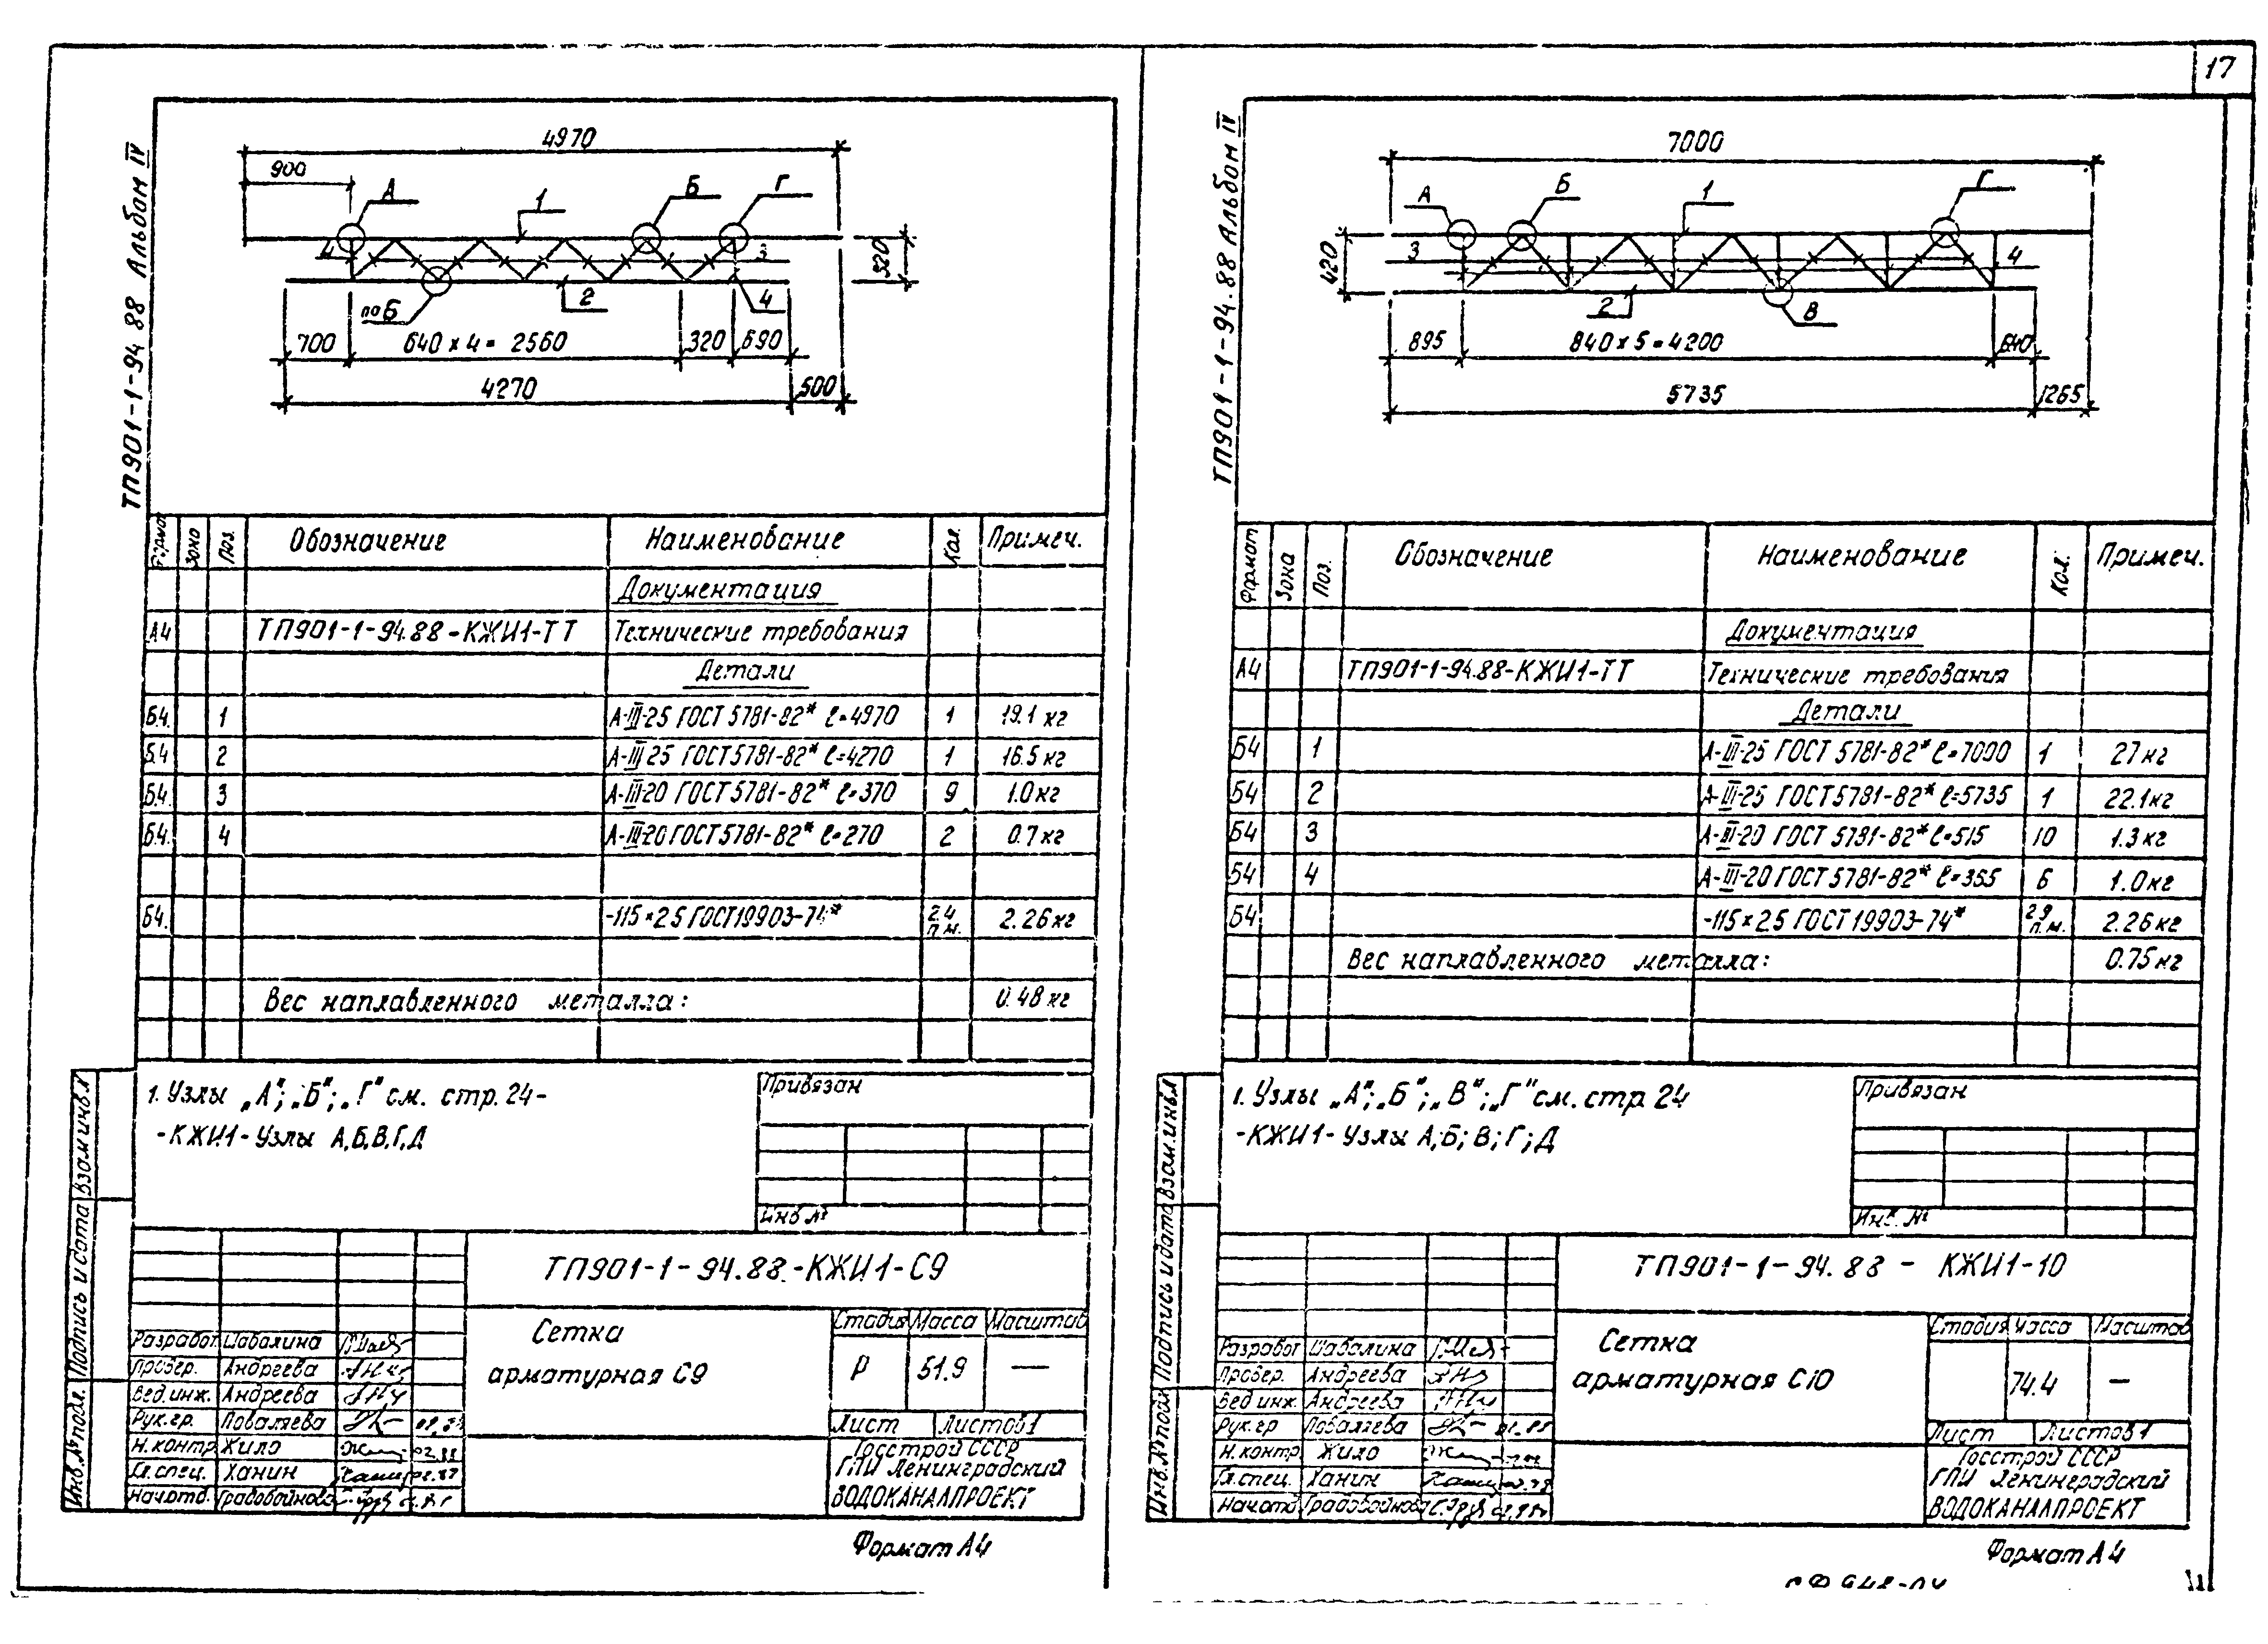 17
ТП901-1-94.88 Альбом IV
4970
900
А
Б
Г
1
4
3
320
по Б
2
4
700
640 x 4 = 2560
320
690
4270
500
Формат
Зона
Поз.
Обозначение
Наименование
Кол.
Примеч.
Документация
А4 ТП901-1-94.88-КЖИ1-ТТ Технические требования
Детали
Б.4. 1 А-III-25 ГОСТ 5781-82* ℓ=4970 1 19.1 кг
Б.4 2 А-III-25 ГОСТ 5781-82* ℓ=4270 1 16.5 кг
Б.4. 3 А-III-20 ГОСТ 5781-82* ℓ=370 9 1.0 кг
Б.4. 4 А-III-20 ГОСТ 5781-82* ℓ=270 2 0.7 кг
Б4. -115×2.5 ГОСТ 19903-74* 2.4 п.м. 2.26 кг
Вес наплавленного металла: 0.48 кг
1. Узлы „А"; „Б"; „Г" см. стр. 24-
-КЖИ1-Узлы А,Б,В,Г,Д
Привязан
Инв №
Взам инв.№
Подпись и дата
Инв.№ подл.
ТП901-1-94.88-КЖИ1-С9
Сетка
арматурная С9
Стадия Масса Масштаб
Р 51.9 —
Лист Листов 1
Госстрой СССР
ГПИ Ленинградский
ВОДОКАНАЛПРОЕКТ
Разработ. Шабалина
Провер. Андреева
Вед.инж. Андреева
Рук.гр. Поваляева
Н.контр. Жило 02.88
Гл.спец. Ханин
Нач.отд. Градобойнова
Формат А4
ТП901-1-94.88 Альбом IV
7000
А
Б
1
Г
3
4
420
2
В
895
840 x 5 = 4200
640
5735
1265
Формат
Зона
Поз.
Обозначение
Наименование
Кол.
Примеч.
Документация
А4 ТП901-1-94.88-КЖИ1-ТТ Технические требования
Детали
Б4 1 А-III-25 ГОСТ 5781-82* ℓ=7000 1 27 кг
Б4 2 А-III-25 ГОСТ 5781-82* ℓ=5735 1 22.1 кг
Б4 3 А-III-20 ГОСТ 5781-82* ℓ=515 10 1.3 кг
Б4 4 А-III-20 ГОСТ 5781-82* ℓ=365 6 1.0 кг
Б4 -115×2.5 ГОСТ 19903-74* 2.9 п.м. 2.26 кг
Вес наплавленного металла: 0.75 кг
1. Узлы „А"; „Б"; „В"; „Г" см. стр 24
-КЖИ1-Узлы А;Б;В;Г;Д
Привязан
Инв. №
Взам.инв.№
Подпись и дата
Инв.№ подл
ТП901-1-94.88 - КЖИ1-10
Сетка
арматурная С10
Стадия Масса Масштаб
74.4 —
Лист Листов 1
Госстрой СССР
ГПИ Ленинградский
ВОДОКАНАЛПРОЕКТ
Разработ Шабалина
Провер. Андреева
Вед инж. Андреева
Рук.гр Поваляева
Н.контр. Жило
Гл.спец. Ханин
Нач.отд Градобойнова
Формат А4